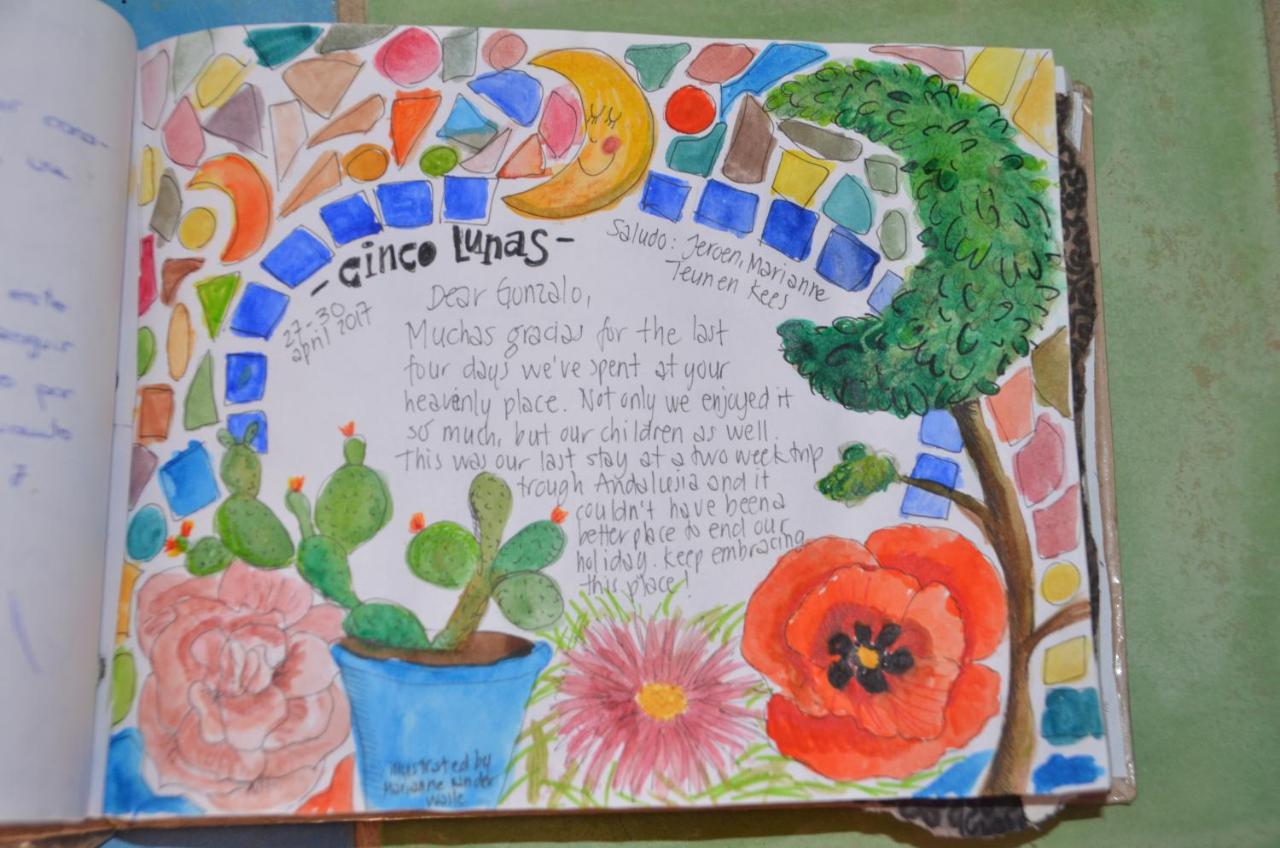 - Cinco Lunas -
27-30
april 2017
Saludo: Jeroen, Marianne
Teun en Kees
Dear Gonzalo,
Muchas gracias for the last
four days we've spent at your
heavenly place. Not only we enjoyed it
so much, but our children as well.
This was our last stay at a two week trip
trough Andalusia and it
couldn't have been a
better place to end our
holiday. Keep embracing
this place!
illustrated by
Marianne van der
Walle